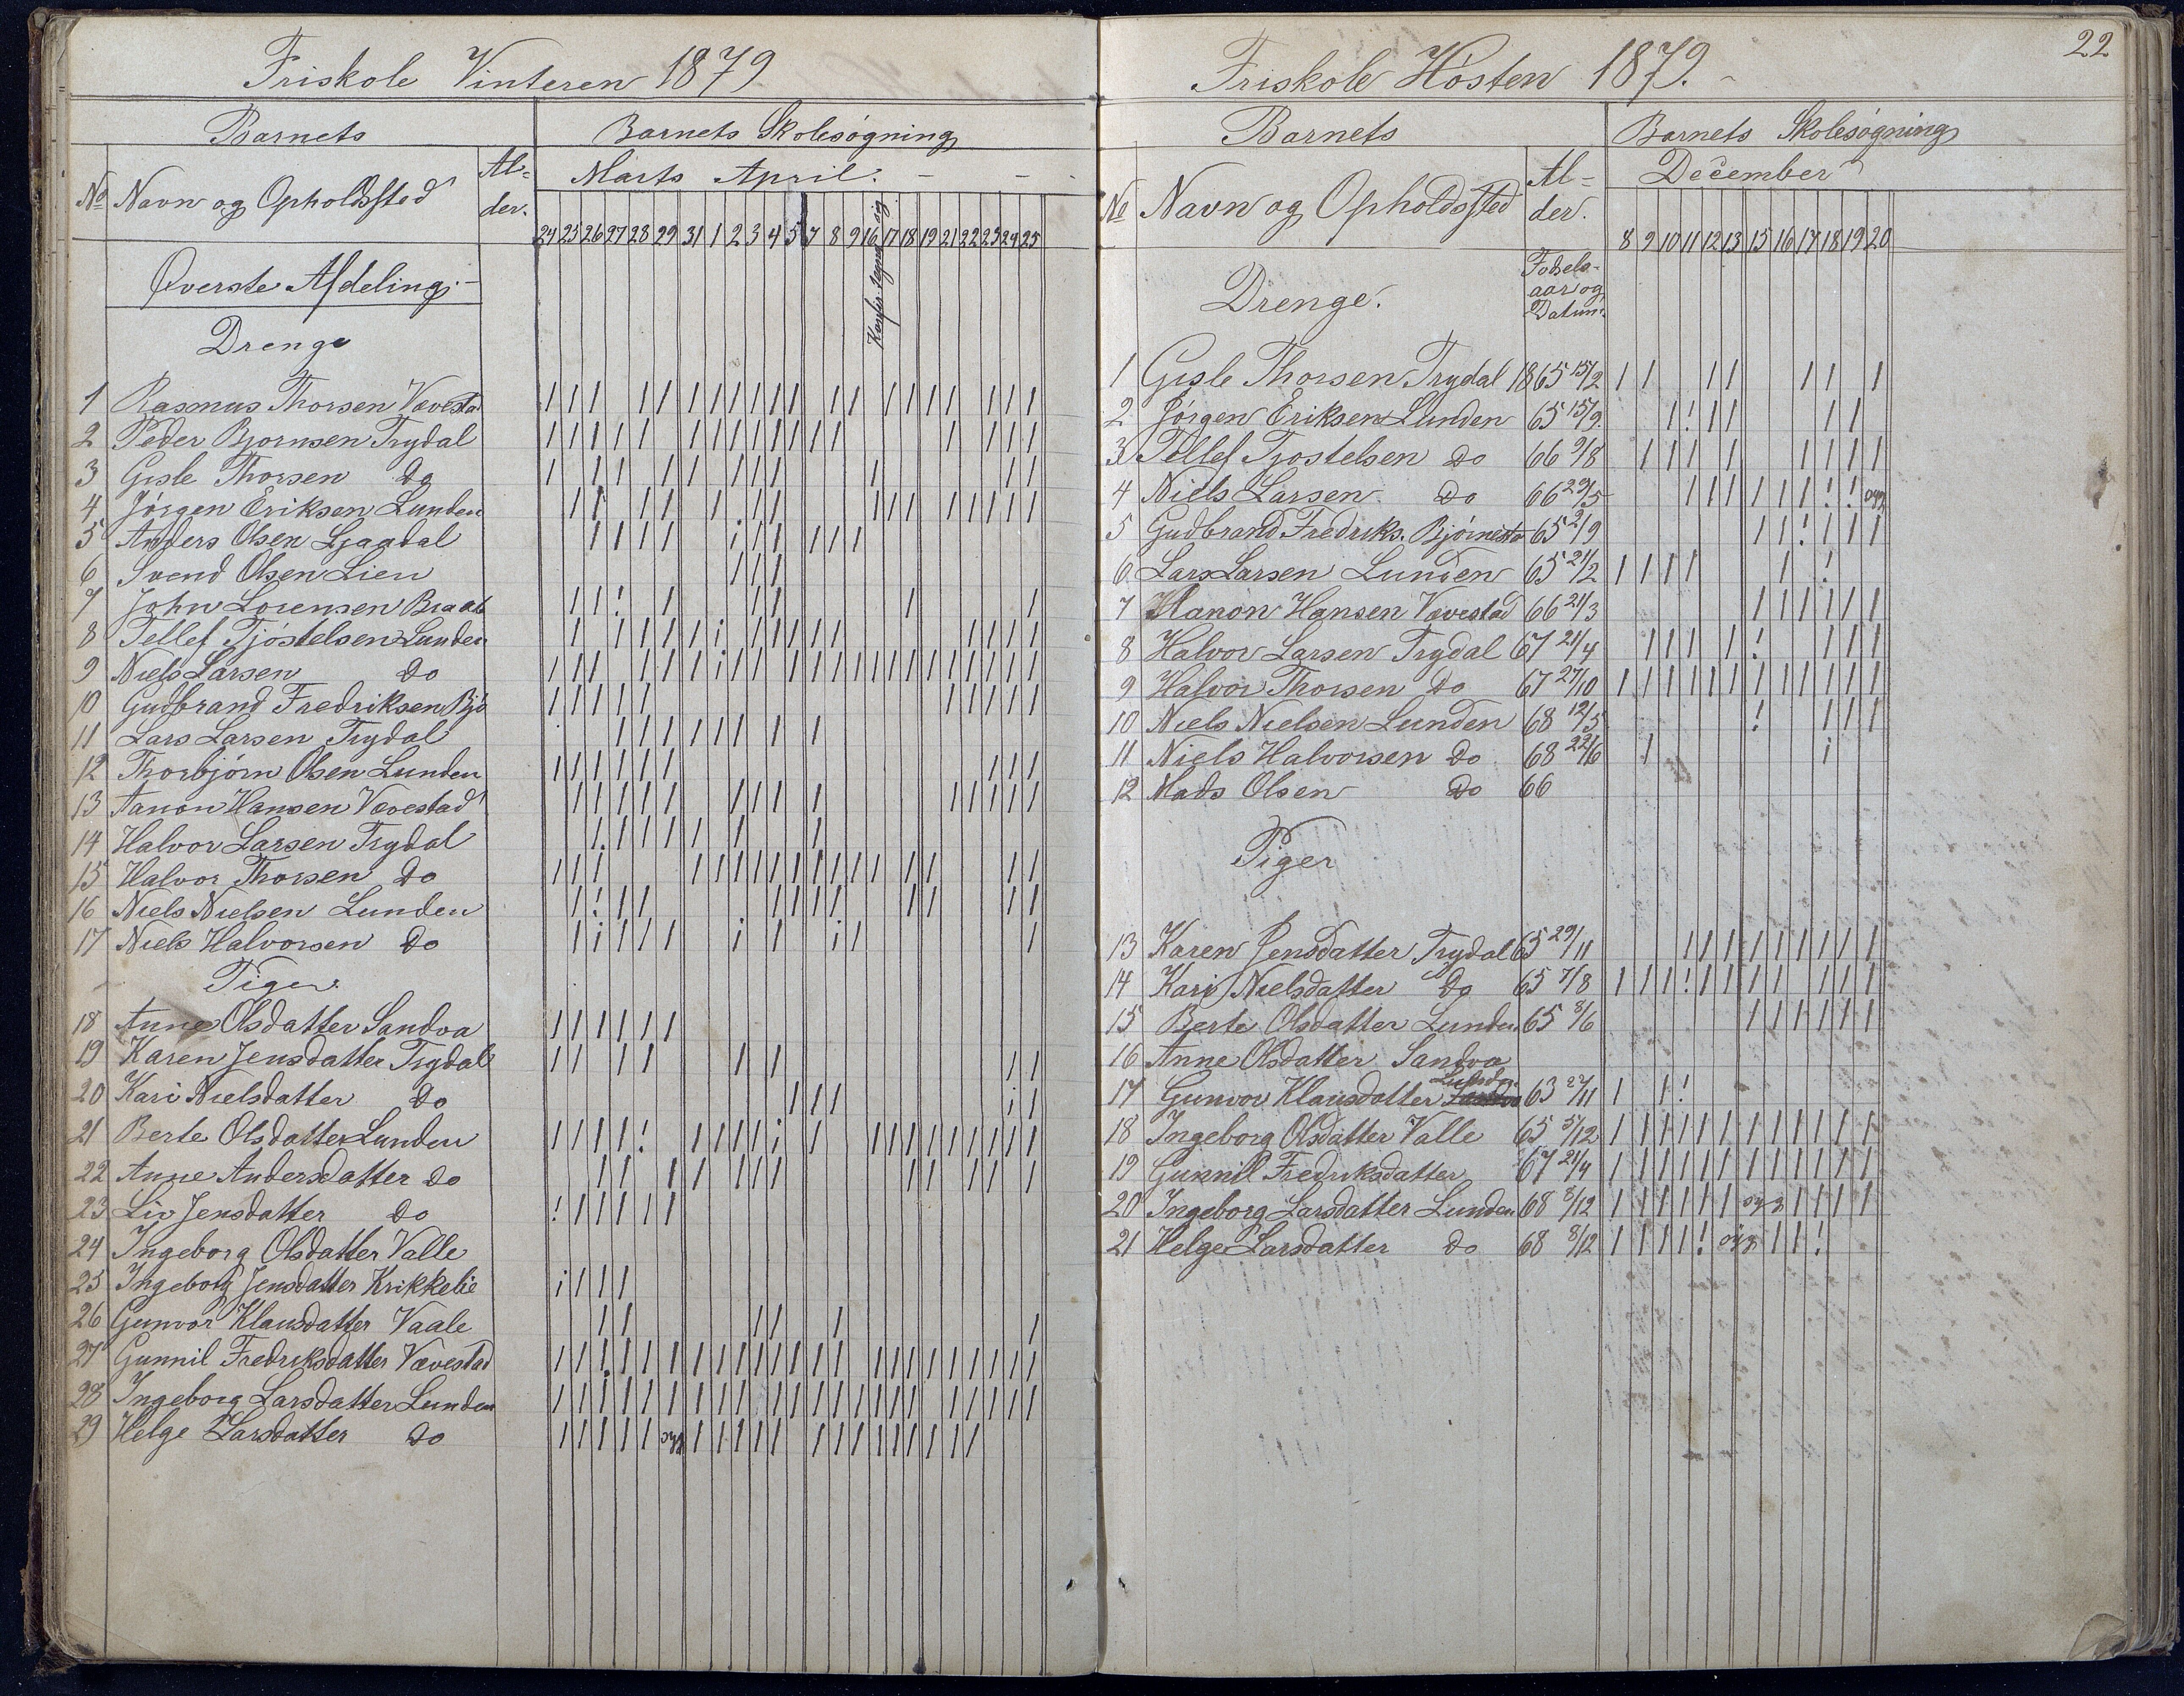 Friskole Vinteren 1879
Barnets
Barnets Skolesøgning
No Navn og Opholdssted
Al-
der.
Marts April.
24 25 26 27 28 29 31 1 2 3 4 5 7 8 9 16 17 18 19 21 22 23 24 25
Øverste Afdeling.
Drenge
1 Rasmus Thorsen Vævestad
2 Peder Bjornsen Trydal
3 Gisle Thorsen Do
4 Jørgen Eriksen Lunden
5 Anders Olsen Ljaadal
6 Svend Olsen Lien
7 John Lorensen
8 Tellef Tjøstelsen Lunden
9 Niels Larsen Do
10 Gudbrand Fredriksen Bjø
11 Lars Larsen Trydal
12 Thorbjørn Olsen Lunden
13 Aanon Hansen Vævestad
14 Halvor Larsen Trydal
15 Halvor Thorsen Do
16 Niels Nielsen Lunden
17 Niels Halvorsen Do
Piger
18 Anne Olsdatter Sandva
19 Karen Jensdatter Trydal
20 Kari Nielsdatter Do
21 Berte Olsdatter Lunden
22 Anne Andersdatter Do
23 Liv Jensdatter Do
24 Ingeborg Olsdatter Valle
25 Ingeborg Jensdatter Krikkelie
26 Gunvor Klausdatter Vaale
27 Gunnil Fredriksdatter Vævestad
28 Ingeborg Larsdatter Lunden
29 Helge Larsdatter Do
22
Friskole Høsten 1879.
Barnets
Barnets Skolesøgning
No Navn og Opholdssted
Al-
der.
December
8 9 10 11 12 13 15 16 17 18 19 20
Drenge.
Fødsels-
aar og
Datum.
1 Gisle Thorsen Trydal 1865 15/2
2 Jørgen Eriksen Lunden 65 15/9
3 Tellef Tjøstelsen Do 66 9/8
4 Niels Larsen Do 66 29/5 syg
5 Gudbrand Fredriks. Bjørnesta 65 2/9
6 Lars Larsen Lunden 65 21/2
7 Hanon Hansen Vævestad 66 21/3
8 Halvor Larsen Trydal 67 21/4
9 Halvor Thorsen Do 67 27/10
10 Niels Nielsen Lunden 68 12/5
11 Niels Halvorsen Do 68 22/6
12 Mads Olsen Do 66
Piger
13 Karen Jensdatter Trydal 65 29/11
14 Kari Nielsdatter Do 65 7/8
15 Berte Olsdatter Lunden 65 8/6
16 Anne Olsdatter Sandva
17 Gunvor Klausdatter 63 27/11
18 Ingeborg Olsdatter Valle 65 5/12
19 Gunnil Fredriksdatter 67 21/4
20 Ingeborg Larsdatter Lunden 68 8/12 syg
21 Helge Larsdatter Do 68 8/12 syg